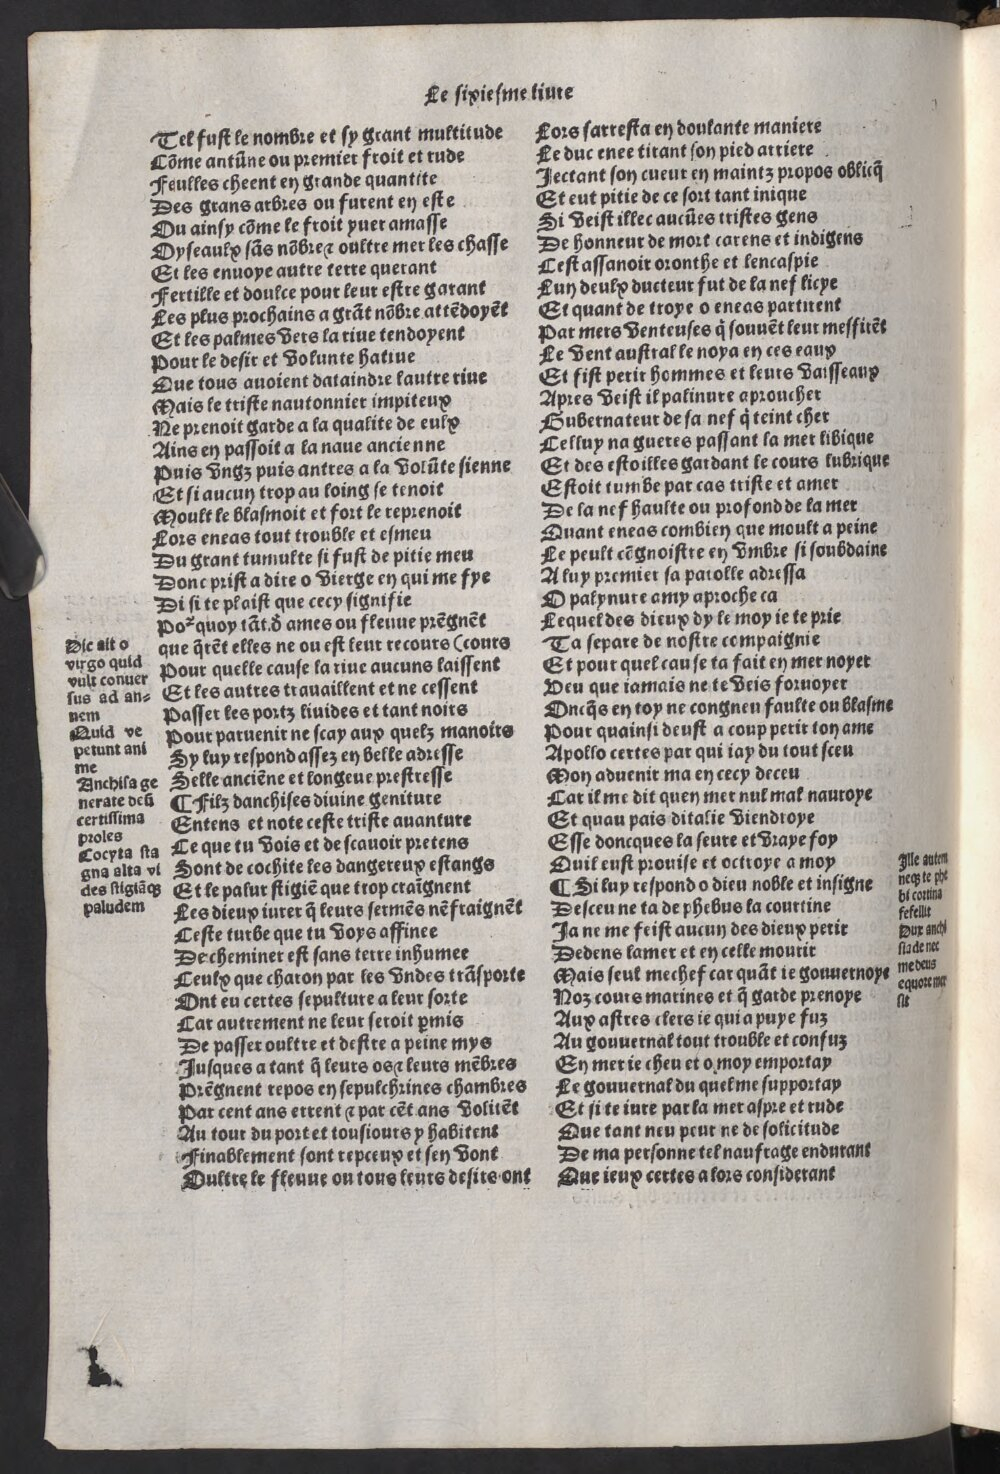 Le sixiesme liure
Tel fust le nombre et sy grant multitude
Cõme antũne ou premier froit et rude
Feulles cheent en grande quantite
Des grans arbres ou furent en este
Ou ainsy cõme le froit yuer amasse
Oyseaulx sãs nõbre ⁊ oultre mer les chasse
Et les enuoye autre terre querant
Fertille et doulce pour leur estre garant
Les plus prochains a grãt nõbre attẽdoyẽt
Et les palmes vers la riue tendoyent
Pour le desir et volunte hatiue
Que tous auoient dataindre lautre riue
Mais le triste nautonnier impiteux
Ne prenoit garde a la qualite de eulx
Ains en passoit a la naue ancienne
Puis vngz puis antres a la volũte sienne
Et si aucun trop au loing se tenoit
Moult le blasmoit et fort le reprenoit
Lors eneas tout trouble et esmeu
Du grant tumulte si fust de pitie meu
Donc prist a dire o vierge en qui me fye
Di si te plaist que cecy signifie
Poꝛ quoy tãt.õ ames ou fleuue prẽgnẽt
que q̃rẽt elles ne ou est leur recours (cours
Pour quelle cause la riue aucuns laissent
Et les autres trauaillent et ne cessent
Passer les portz liuides et tant noirs
Pour paruenir ne scay aux quelz manoirs
Sy luy respond assez en belle adresse
Selle anciẽne et longeue prestresse
¶ Filz danchises diuine geniture
Entens et note ceste triste auanture
Ce que tu vois et de scauoir pretens
Sont de cochite les dangereux estangs
Et le palur stigiẽ que trop craĩgnent
Les dieux iurer q̃ leurs sermẽs nẽfraignẽt
Ceste turbe que tu voys affinee
De cheminer est sans terre inhumee
Ceulx que charon par les vndes trãsporte
Ont eu certes sepulture a leur sorte
Car autrement ne leur seroit ꝑmis
De passer oultre et destre a peine mys
Jusques a tant q̃ leurs os ⁊ leurs mẽbres
Prẽgnent repos en sepulchrines chambres
Par cent ans errent ⁊ par cẽt ans volitẽt
Au tour du port et tousiours y habitent
Finablement sont repceux et sen vont
Oultre le fleuue ou tous leurs desirs ont
Dic ait o
virgo quid
vult conuer
sus ad an-
nem
Quid ve
petunt ani
me
Anchisa ge
nerate deũ
certissima
proles
Cocyta sta
gna alta vi
des stigiãqꝫ
paludem
Lors sarresta en doulante maniere
Le duc enee tirant son pied arriere
Jectant son cueur en maintz propos obliq̃
Et eut pitie de ce sort tant inique
Si veist illec aucũes tristes gens
De honneur de mort carens et indigens
Cest assanoir oronthe et lencaspie
Lun deulx ducteur fut de la nef licye
Et quant de troye o eneas partirent
Par mers venteuses q̃ souuẽt leur messirẽt
Le vent austral le noya en ces eaux
Et fist perir hommes et leurs vaisseaux
Apres veist il palinure aproucher
Gubernateur de sa nef q̃ teint cher
Celluy na gueres passant la mer libique
Et des estoilles gardant le cours lubrique
Estoit tumbe par cas triste et amer
De la nef haulte ou profond de la mer
Quant eneas combien que moult a peine
Le peult cẽgnoistre en vmbre si soubdaine
A luy premier sa parolle adressa
O palynure amy aproche ca
Lequel des dieux dy le moy ie te prie
Ta separe de nostre compaignie
Et pour quel cause ta fait en mer noyer
Veu que iamais ne te veis foruoyer
Oncq̃s en toy ne congneu faulte ou blasme
Pour quainsi deust a coup perir ton ame
Apollo certes par qui iay du tout sceu
Mon aduenir ma en cecy deceu
Car il me dit quen mer nul mal nauroye
Et quau pais ditalie viendroye
Esse doncques la seure et vraye foy
Quil eust prouise et octroye a moy
¶ Si luy respond o dieu noble et insigne
Desceu ne ta de phebus la courtine
Ja ne me feist aucun des dieux perir
Dedens lamer et en celle mourir
Mais seul mechef car quãt ie gouuernoye
Noz cours marines et q̃ garde prenoye
Aux astres clers ie qui apuye fuz
Au gouuernal tout trouble et confuz
En mer ie cheu et o moy emportay
Le gouuernal du quel me supportay
Et si te iure par la mer aspre et rude
Que tant neu peur ne de solicitude
De ma personne tel naufrage endurant
Que ieux certes a lors considerant
Ille autem
neqꝫ te phe
bi cortina
fefellit
Dux anchi
siade nec
me deus
equore mer
sit